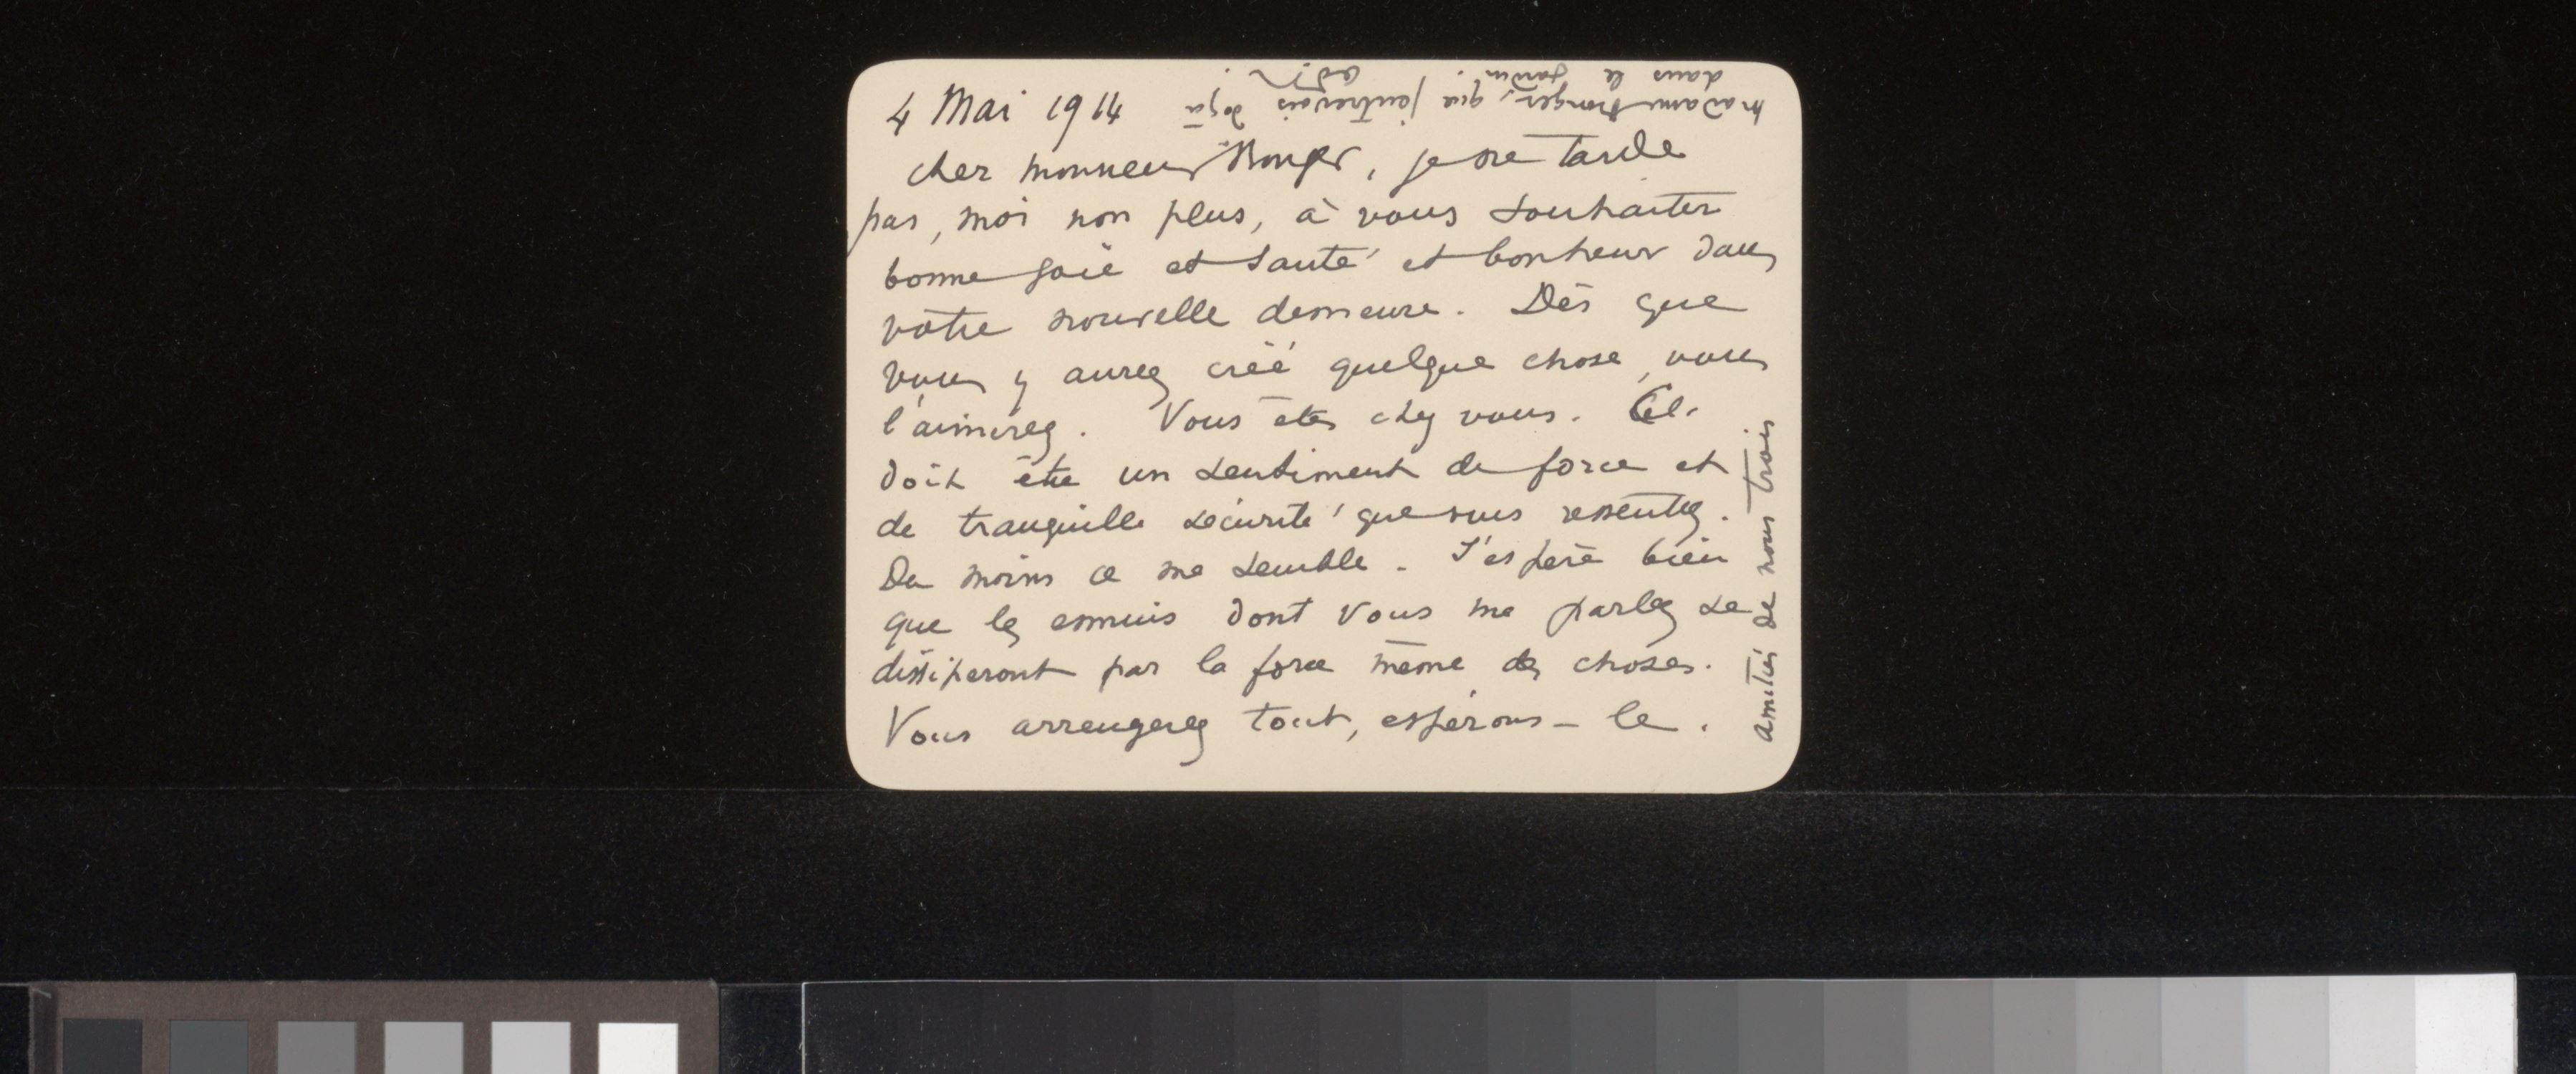 4 Mai 1914
cher monsieur Bonger, je ne tarde
pas, moi non plus, à vous souhaiter
bonne joie et santé et bonheur dans
votre nouvelle demeure. Dès que
vous y aurez créé quelque chose, vous
l'aimerez. Vous êtes chez vous. Ce
doit être un sentiment de force et
de tranquille sécurité que vous ressentez.
Du moins ce me semble. J'espère bien
que les ennuis dont vous me parlez se
dissiperont par la force même des choses.
Vous arrengerez tout, espérons-le.
amitiés de nous trois
madame Bonger, que j'entrevois déjà
dans le jardin.